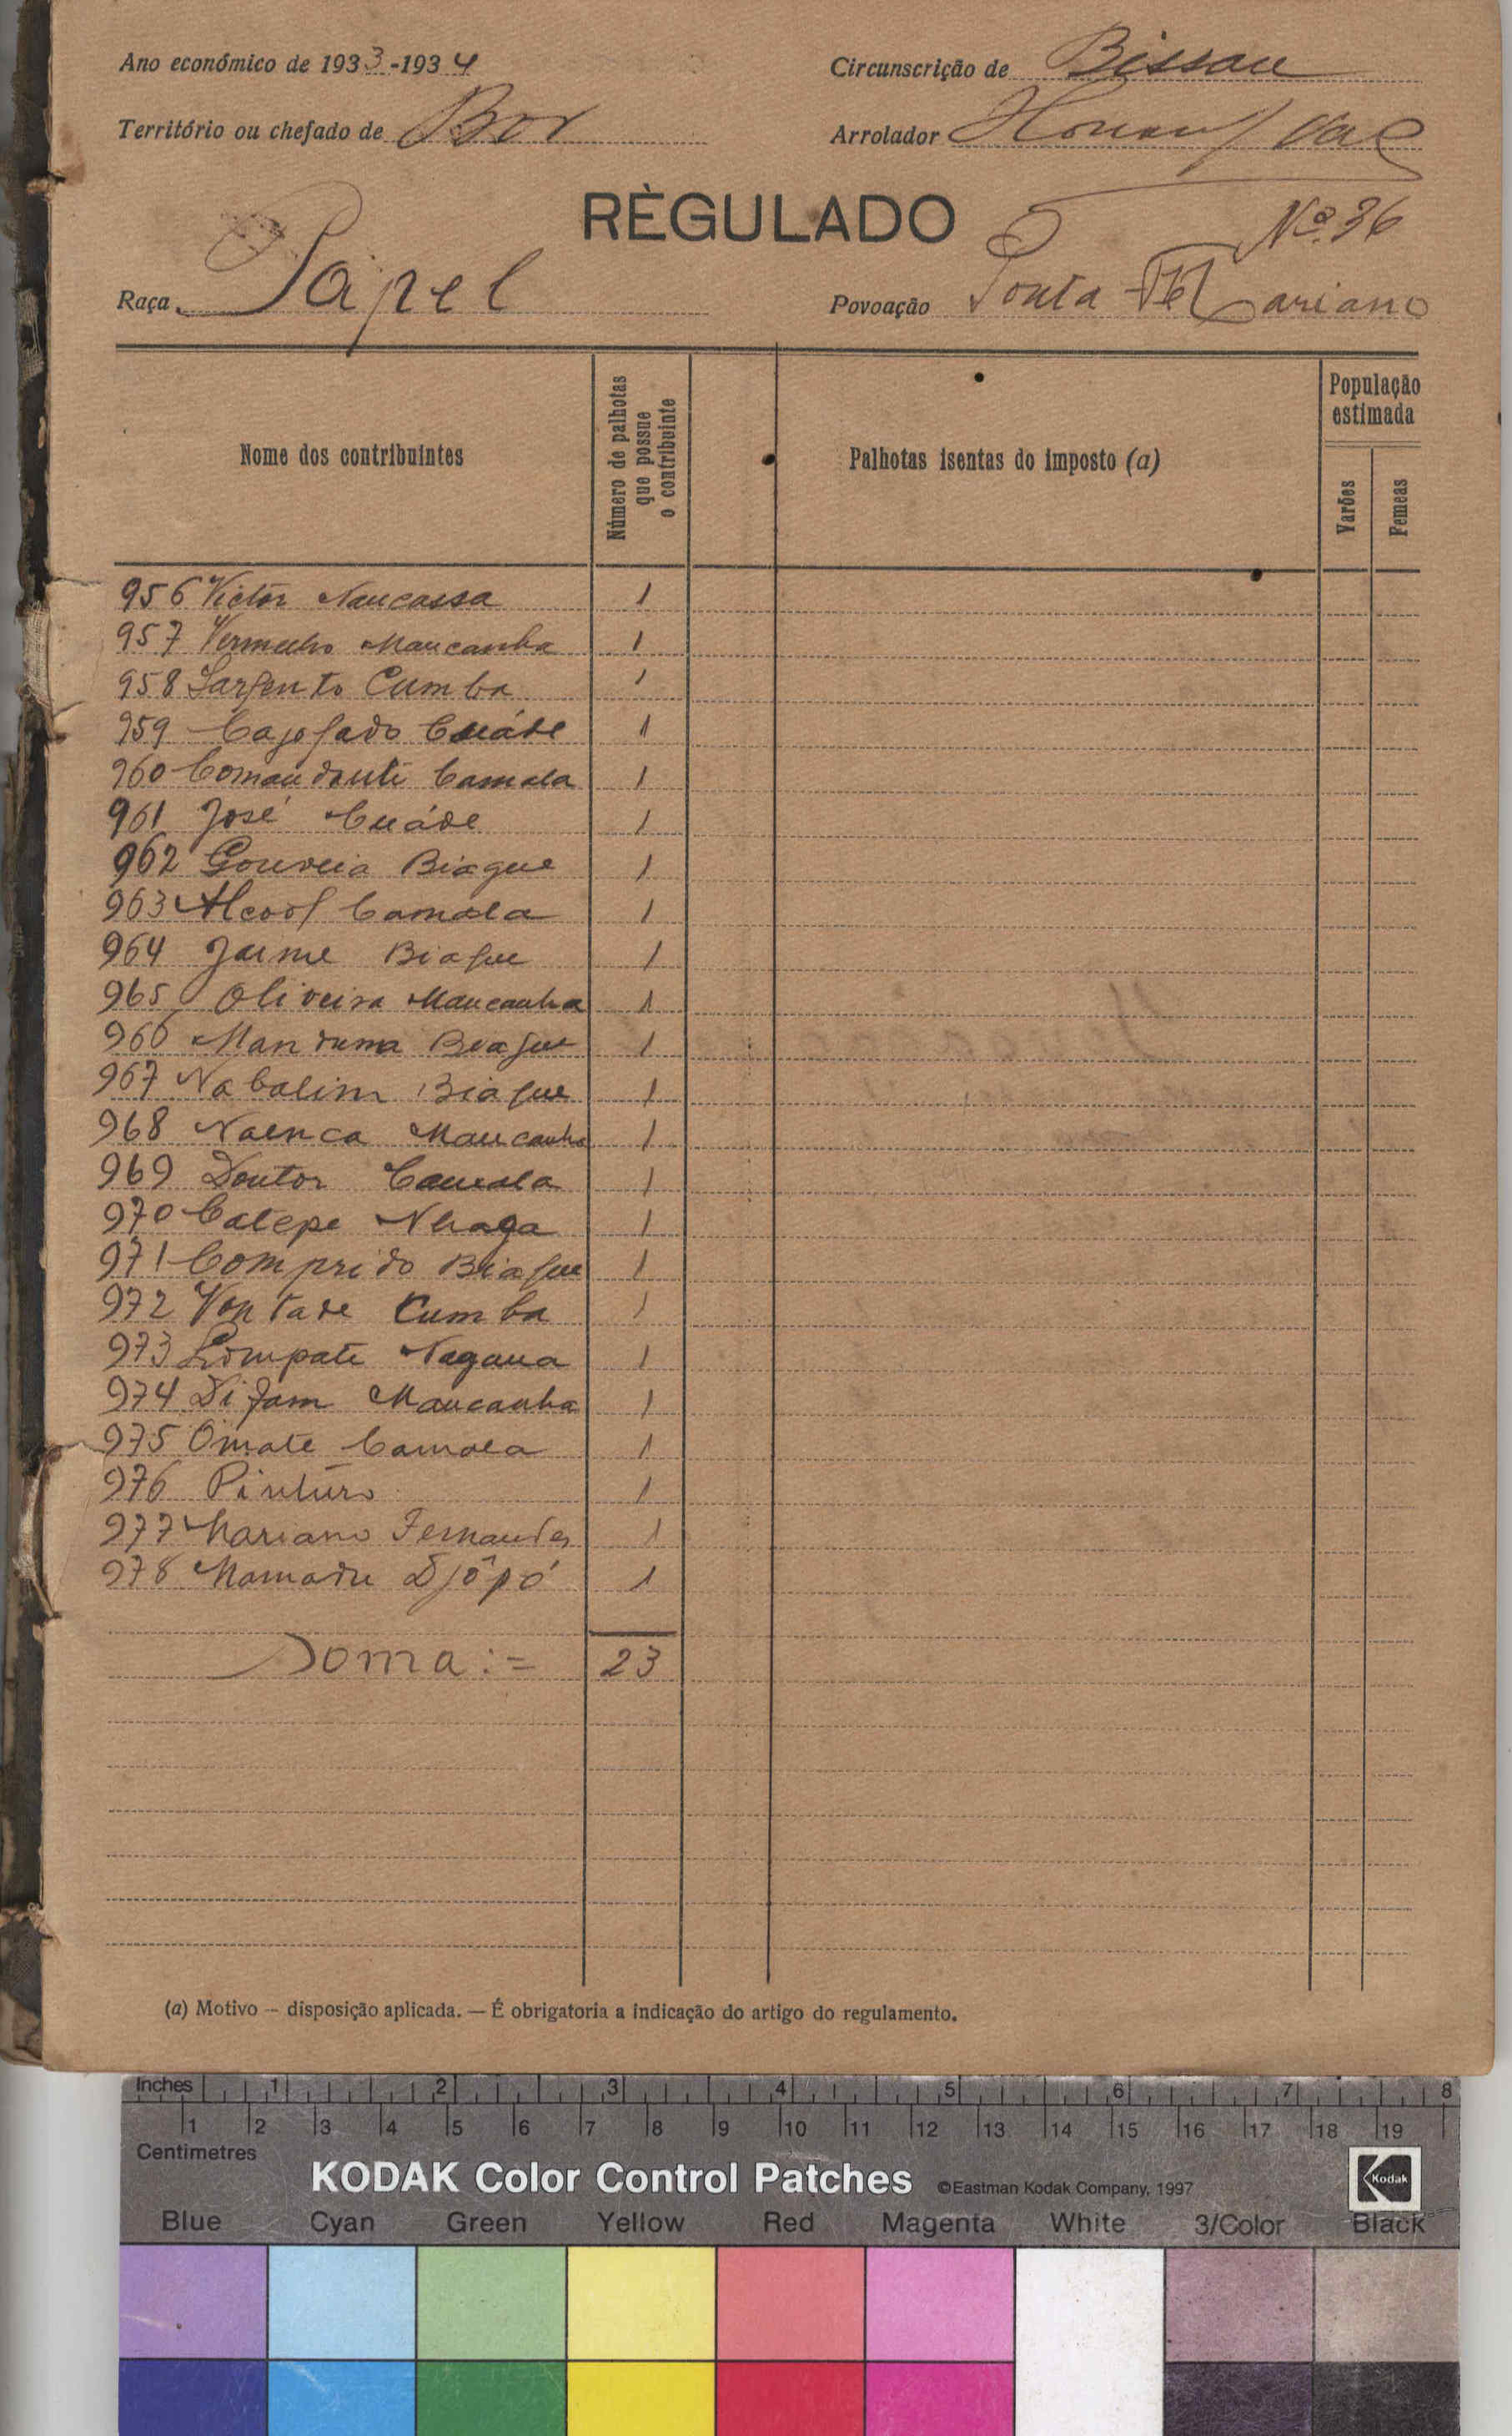 Ano económico de 1933-1934
Circunscrição de Bissau
Território ou chefado de Bor
Arrolador
RÈGULADO
Nº 36
Raça Papel
Povoação Ponta Mariano
Nome dos contribuintes
Número de palhotas que possue o contribuinte
Palhotas isentas do imposto (a)
População estimada
Varões
Femeas
956 Victor Naucassa 1
957 Vermelho Maucanha 1
958 Sargento Cumba 1
959 Cajofado Cuáde 1
960 Comandante Camala 1
961 José Cuáde 1
962 Gouveia Biague 1
963 Alcool Camala 1
964 Jaime Biague 1
965 Oliveira Maucanha 1
966 Manduma Biague 1
967 Nabalim Biague 1
968 Naenca Maucanha 1
969 Doutor Camala 1
970 Catepe Nhaga 1
971 Comprido Biague 1
972 Vontade Cumba 1
973 Lompate Nagana 1
974 Difam Maucanha 1
975 Omate Camala 1
976 Pinturo 1
977 Mariano Fernandes 1
978 Mamadu Djôpó 1
Soma:= 23
(a) Motivo — disposição aplicada. — É obrigatoria a indicação do artigo do regulamento.
Inches 1 2 3 4 5 6 7 8
1 2 3 4 5 6 7 8 9 10 11 12 13 14 15 16 17 18 19
Centimetres
KODAK Color Control Patches ©Eastman Kodak Company, 1997 Kodak
Blue Cyan Green Yellow Red Magenta White 3/Color Black